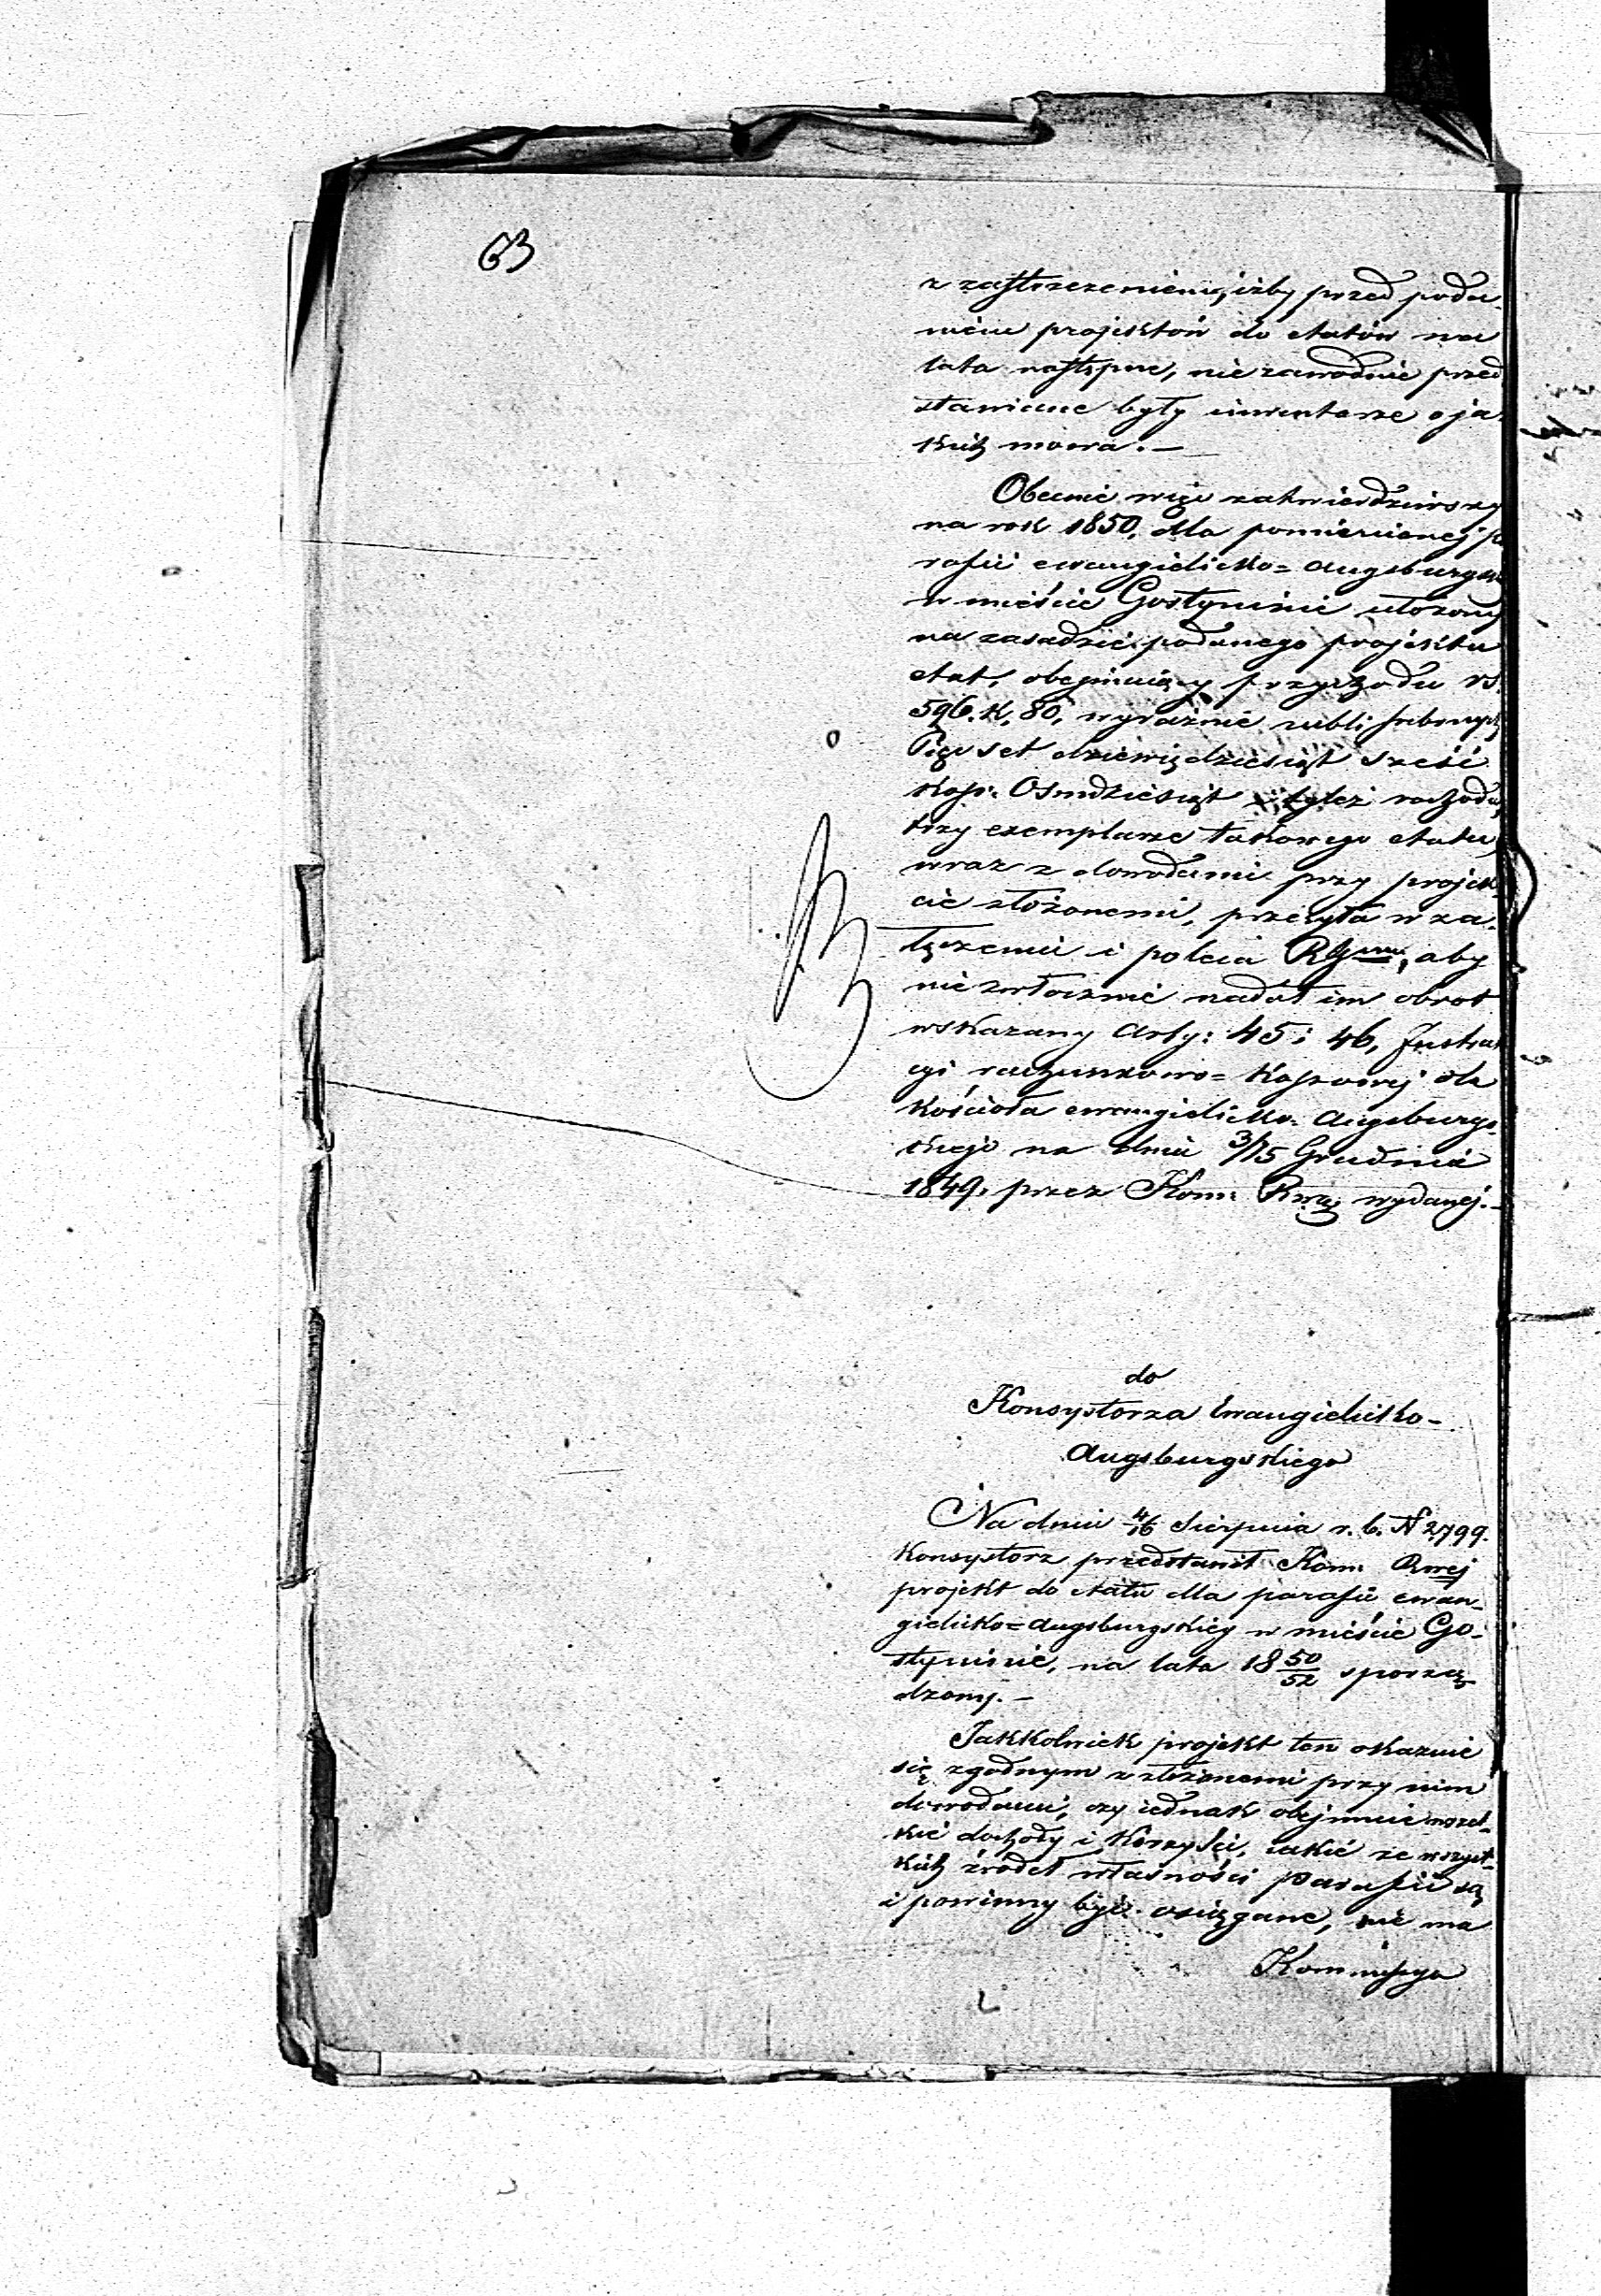 63
z zastrzeżeniem, iżby przed poda-
niem projektów do etatów na
lata następne, niezawodnie przed
stawiane były inwentarze o ja-
kich mowa. —
Obecnie więc zatwierdziwszy
na rok 1850, dla pomienionej pa
rafii ewangielicko= augsburgsk
w mieście Gostyninie ułożony
na zasadzie podanego projektu
etat, obejmujący przychodu rs.
596. k. 80, wyraźnie rubli srebrnych
Pięćset dziewięćdziesiąt sześć
kop: Osmdziesiąt i tyleż rozchodu,
trzy exemplarze takowego etatu,
wraz z dowodami przy projek-
cie złożonemi, przesyła w za-
łączeniu i poleca, aby
niezwłocznie nadał im obrot
wskazany Arty: 45 i 46, Instruk
cyi rachunkowo= kassowej dla
Kościoła ewangielicko= Augsburgs-
kiego na dniu 3/15 Grudnia
1849. przez Kom: Rwą wydanej. —
do
Konsystorza Ewangielicko-
Augsburgskiego
Na dniu 4/16 Sierpnia r. b. N 2799.
Konsystorz przedstawił Kom: Rwej
projekt do etatu dla parafii ewan-
gielicko= Augsburgskiey w mieście Go-
styninie, na lata 18 50/52 sporzą
dzony. —
Jakkolwiek projekt ten okazuie
się zgodnym z złożonemi przy nim
dowodami, czy iednak obejmuie wszel-
kie dochody i korzyści, iakie ze wszyst-
kich źródeł własności parafii są
i powinny być osiągane, nie ma
Kommissya